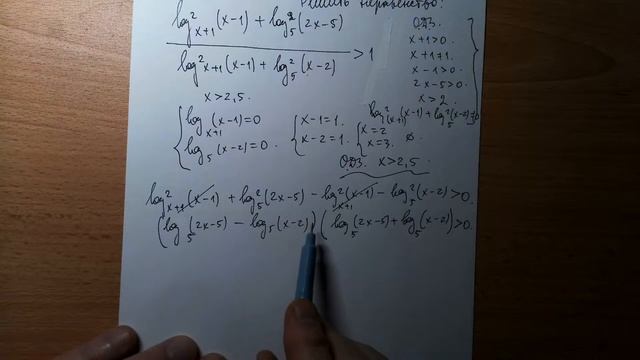 Решить неравенство:
log²ₓ₊₁(x-1) + log²₅(2x-5)
log²ₓ₊₁(x-1) + log²₅(x-2) > 1
О.Д.З.
x+1>0.
x+1≠1.
x-1>0.
2x-5>0.
x>2.
log²₍ₓ₊₁₎(x-1) + log²₅(x-2) ≠ 0
x>2,5
{ logₓ₊₁(x-1)=0
log₅(x-2)=0.
{ x-1=1.
x-2=1.
{ x=2
x=3. ø.
О.Д.З. x>2,5
log²ₓ₊₁(x-1) + log²₅(2x-5) - log²ₓ₊₁(x-1) - log²₅(x-2)>0.
(log₅(2x-5) - log₅(x-2))(log₅(2x-5)+log₅(x-2))>0.